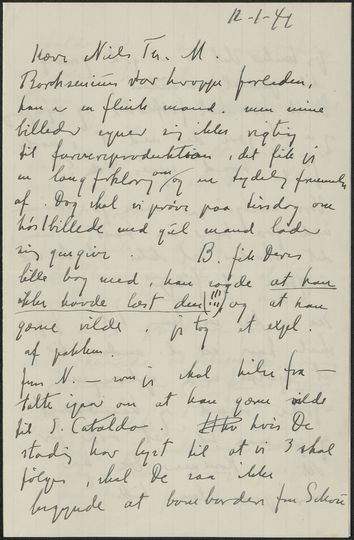 12-1-44
Kære Niels Th. M.
Borchsenius var heroppe forleden,
han er en flink mand. men mine
billeder egner sig ikke rigtig
til farvereproduktion, det fik jeg
en lang forklaring om og en tydelig fornemmelse
af. Dog skal vi prøve paa tirsdag om
høstbillede med gul mand lader
sig gengive. B. fik Deres
lille bog med, han sagde at han
ikke havde læst den (!!!) og at han
gerne vilde. jeg tog et expl.
af pakken.
fru N. – som jeg skal hilse fra –
talte igaar om at han gerne vilde
til S. Cataldo. hvis De
stadig har lyst til at vi 3 skal
følges, skal De saa ikke
begynde at bombardere fru Schou